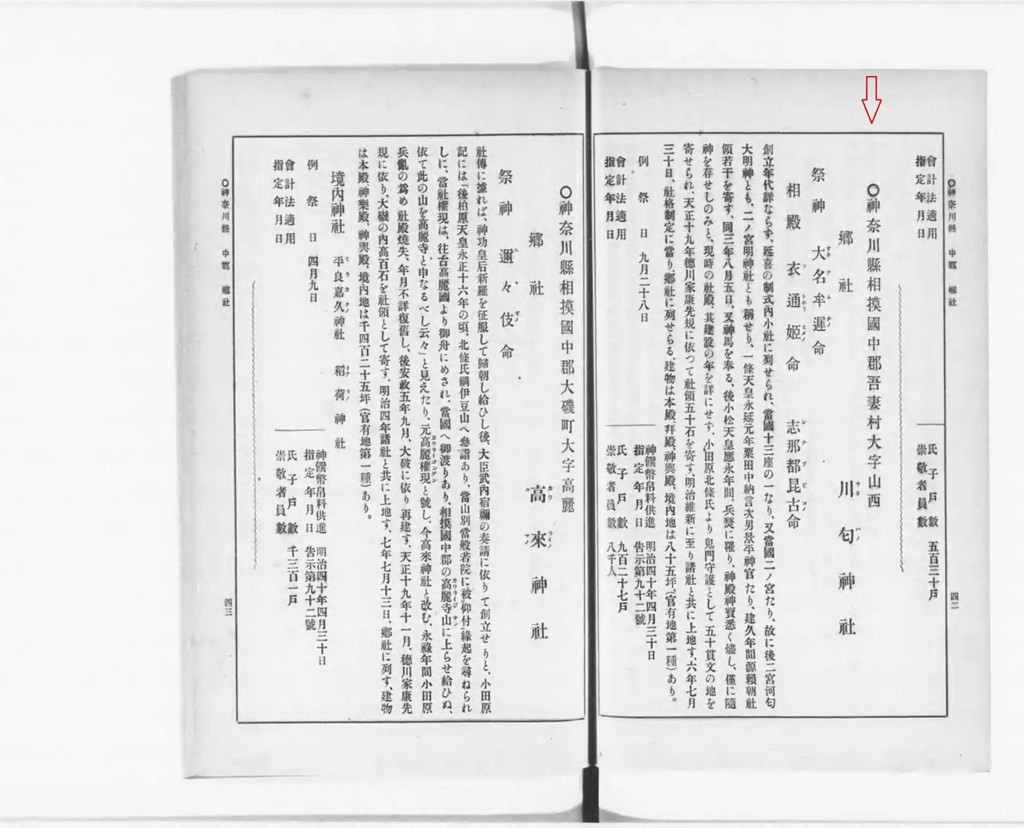 ○神奈川縣 中郡 郷社
四二
會計法適用
指定年月日
氏子戶數 五百三十戶
崇敬者員數
○神奈川縣相摸國中郡吾妻村大字山西
郷社 川匂神社
祭神 大名牟遲命
相殿 衣通姬命 志那都昆古命
創立年代詳ならず、延喜の制式內小社に列せられ、當國十三座の一なり、又當國二ノ宮たり、故に後二宮河匂
大明神とも、二ノ宮明神社とも稱せり、一條天皇永延元年粟田中納言次男景平神官たり、建久年間源賴朝社
領若干を寄す、同三年八月五日、又神馬を奉る、後小松天皇應永年間、兵燹に罹り、神殿神寶悉く燼し、僅に隨
神を存せしのみと、現時の社殿、其建設の年を詳にせず、小田原北條氏より鬼門守護として五十貫文の地を
寄せられ、天正十九年德川家康先規に依つて社領五十石を寄す、明治維新に至り諸社と共に上地す、六年七月
三十日、社格制定に當り鄕社に列せらる、建物は本殿、拜殿、神輿殿、境內地は八十五坪(官有地第一種)あり。
例祭日 九月二十八日
神饌幣帛料供進
指定年月日 明治四十年四月三十日
吿示第九十二號
會計法適用
指定年月日
氏子戶數 九百二十七戶
崇敬者員數 八千人
○神奈川縣相摸國中郡大磯町大字高麗
郷社 高來神社
祭神 邇々伎命
社傳に據れば、神功皇后新羅を征服して歸朝し給ひし後、大臣武內宿禰の奏請に依りて創立せりと、小田原
記には「後柏原天皇永正十六年の頃、北條氏綱伊豆山へ參詣あり、當山別當般若院に被仰付緣起を尋ねられ
しに、當社權現は、往古高麗國より御舟にめされ、當國へ御渡りあり、相摸國中郡の高麗寺山に上らせ給ひぬ、
依て此の山を高麗寺と申なるべし云々」と見えたり、元高麗權現と號し、今高來神社と改む、永祿年間小田原
兵亂の爲め社殿燒失、年月不詳復舊し、後安政五年九月、大破に依り再建す、天正十九年十一月、德川家康先
規に依り、大磯の內高百石を社領として寄す、明治四年諸社と共に上地す、七年七月十三日、鄕社に列す、建物
は本殿、神樂殿、神輿殿、境內地は千四百二十五坪(官有地第一種)あり。
境內神社 平良嘉久神社 稻荷神社
例祭日 四月九日
神饌幣帛料供進
指定年月日 明治四十年四月三十日
吿示第九十二號
會計法適用
指定年月日
氏子戶數 千三百一戶
崇敬者員數
○神奈川縣 中郡 郷社
四三